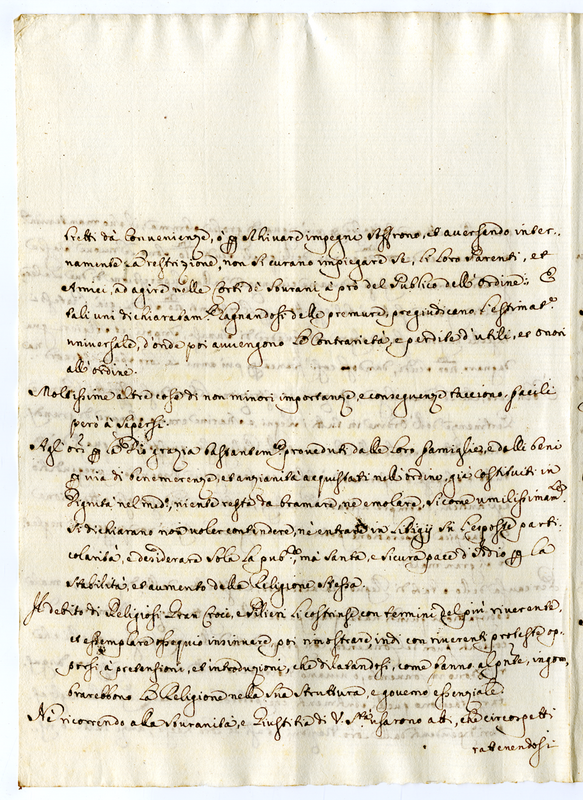 tretti dà Convenienze, ò per schivare impegni soffrono, et aversendo inter-
namente la restrizione, non si curano impiegare se, li loro Parenti, et
Amici, ad agire nelle Corti di Sourani à prò del Publico dell'Ordine; E
tali uni dichiaratam.te lagnandosi delle premure, pregiudicano l'estimat.e
universale, d'onde poi avvengono le Contrarietà, e perdite d'utili, et onori
all'ordine.
Moltissime altre cose di non minori importanze, e conseguenze tacciono, facili
però à sapersi.
Agl'ori per la Dio grazia bastantem.te proveduti dalle loro famiglie, e dalli beni
per via di benemerenze, et anzianità acquistati nell'ordine, già costituiti in
Dignità nel med.o, niente resta da bramare, nè emolare, si come umilissimam.te
si dichiarano non voler contendere, nè entrare in litigij sù l'esposte parti-
colarità, e desiderare solo la pub.ca, mà santa, e sicura pace d'Iddio per la
stabilità, et aumento della Religione stessa.
Il debito di Religiosi Gran Croci, e Pilieri li costrinse con termini del più riverente,
et essemplare ossequio insinuare, poi rimostrare, indi con riverenti proteste op-
porsi à pretensioni, et introduzioni, che dilatandosi, come fanno al pnte, ingom-
brarebbono la Religione nella sua struttura, e governo essenziale.
Nè ricorrendo alla Souranità, e Giustitia di V. usarono atti, che circospetti
rattenendosi